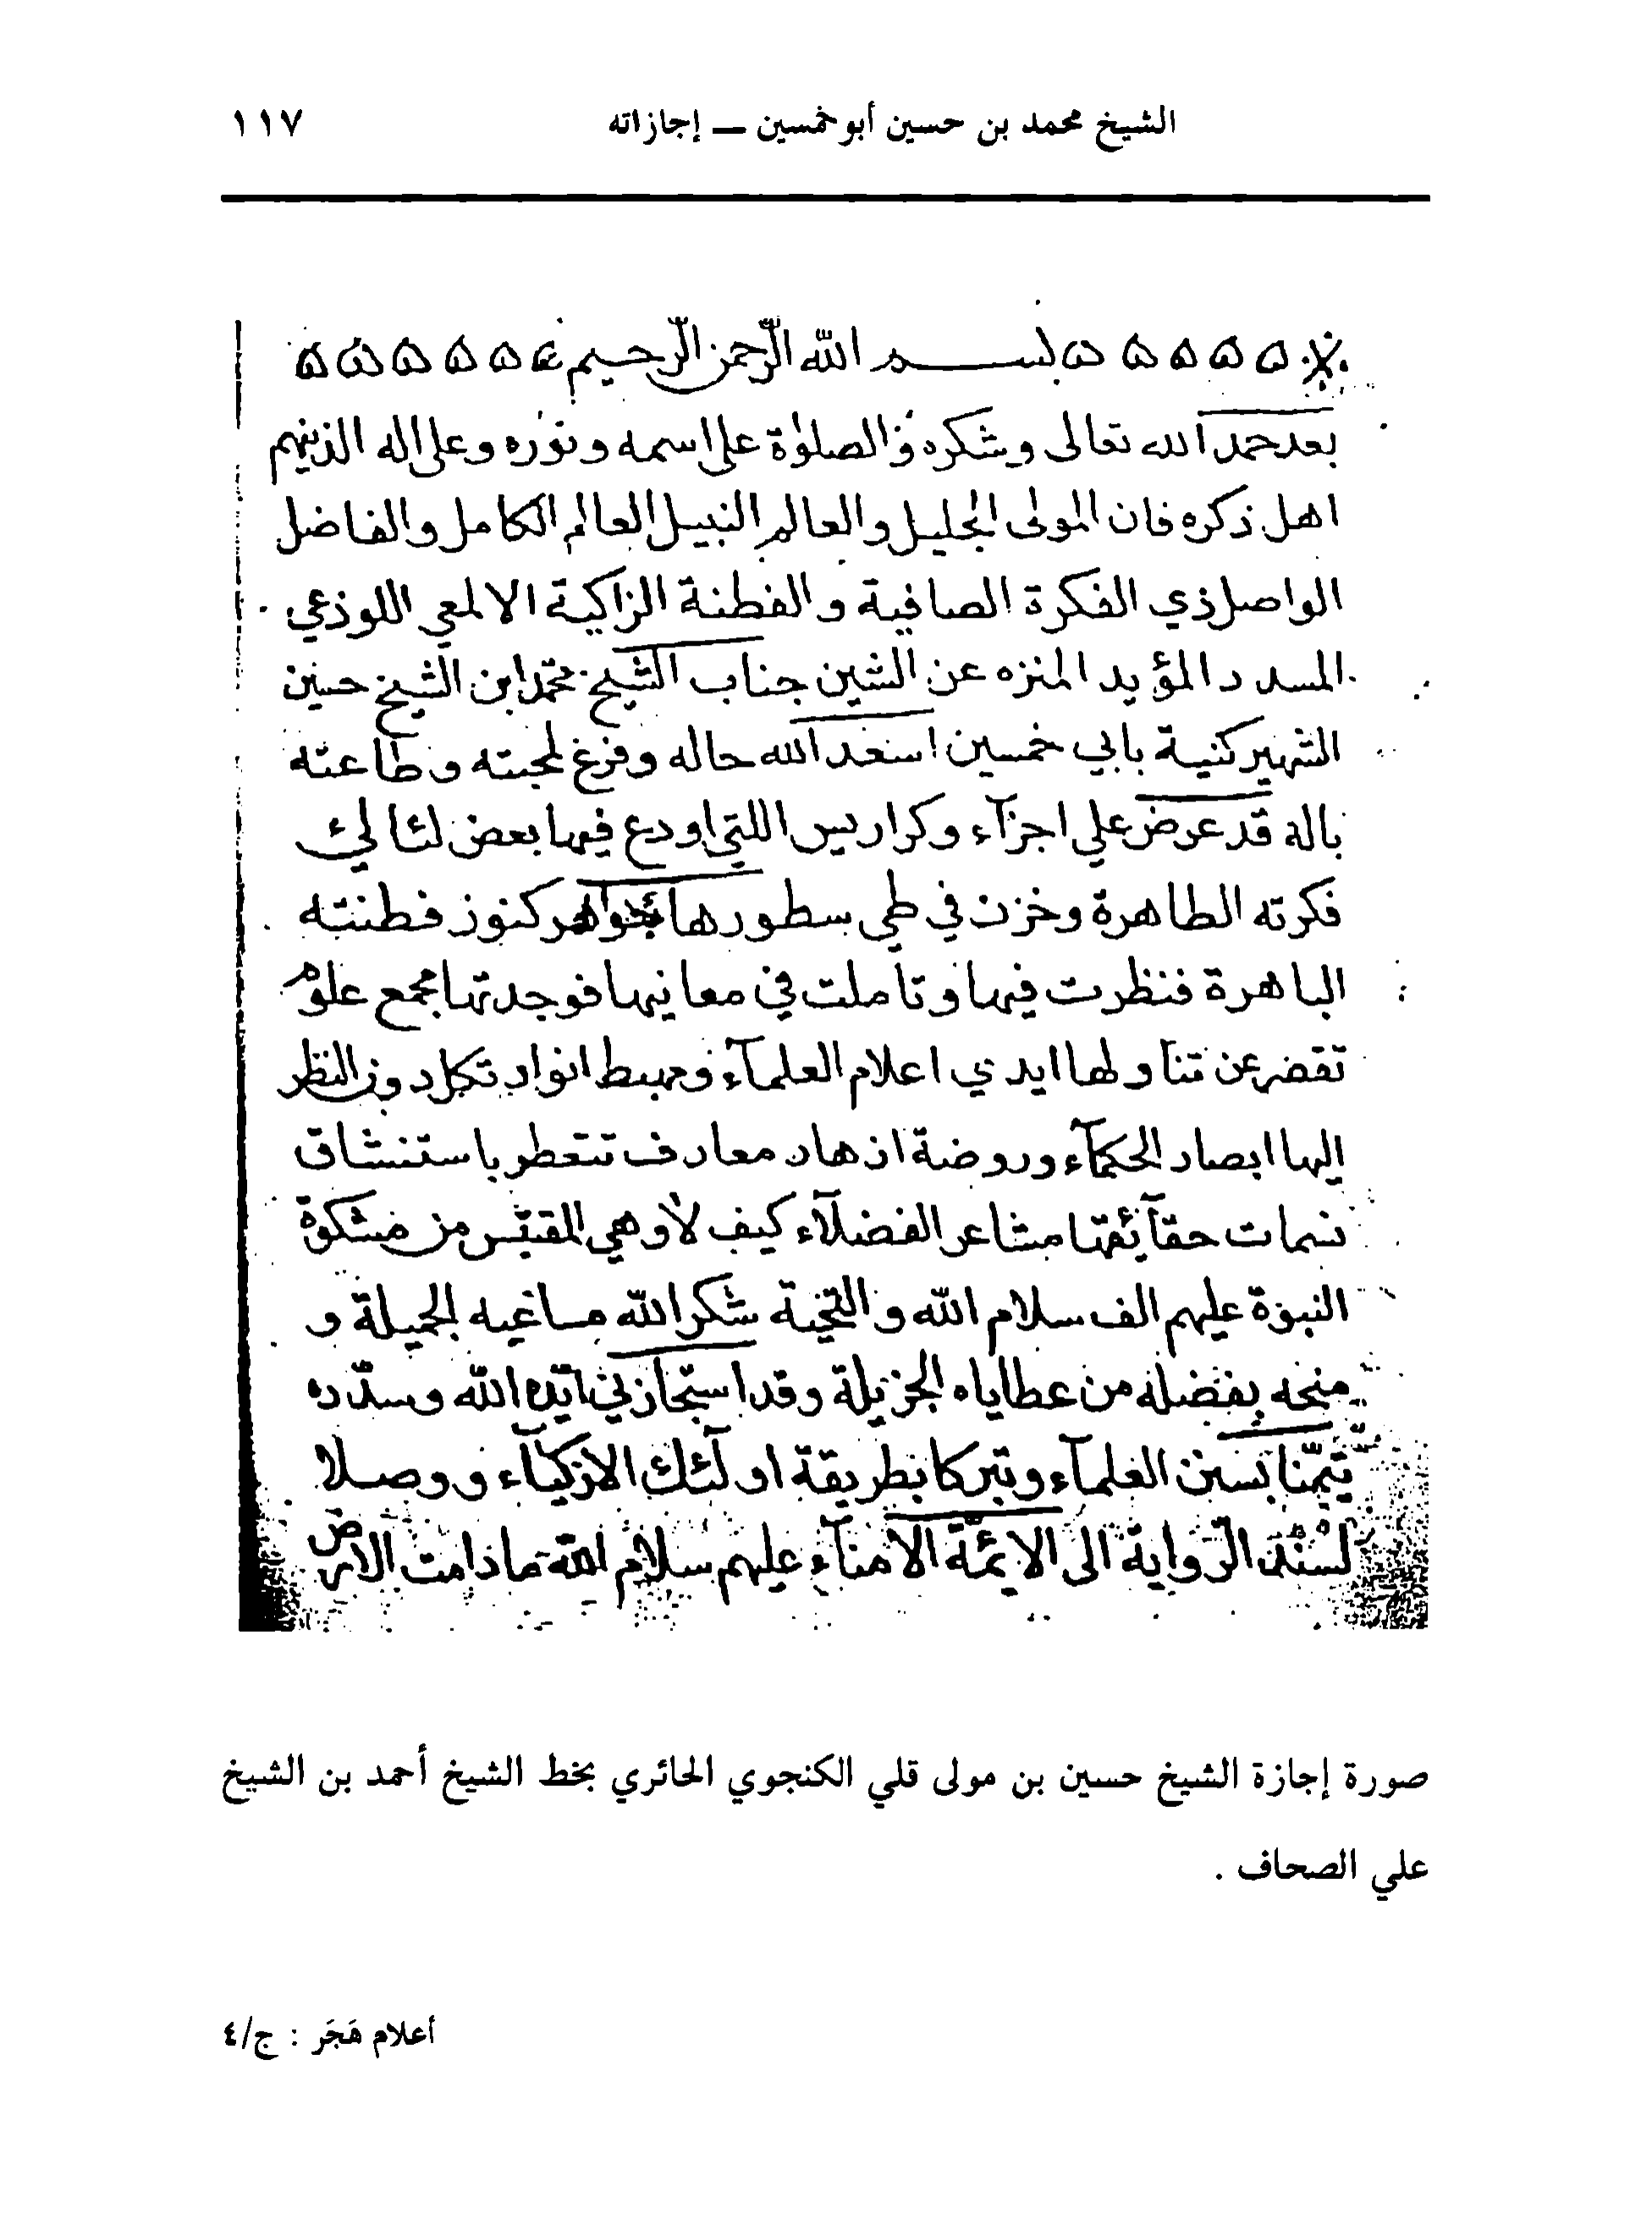 الشيخ محمد بن حسين أبو خمسين — إجازاته ١١٧
بسم الله الرّحمن الرّحيم
بعد حمد الله تعالى وشكره والصلوٰة على اسمه ونوره وعلى اله الذينهم
اهل ذكره فان المولى الجليل والعالم النبيل العالم الكامل والفاضل
الواصل ذي الفكرة الصافية والفطنة الزاكية الالمعي اللوذعي
المسدد المؤيد المنزه عن الشين جناب الشيخ محمد ابن الشيخ حسين
الشهير كنية بابي خمسين اسعد الله حاله وفرغ لمحبته وطاعته
باله قد عرض علي اجزآء وكراريس اللتي اودع فيها بعض لئالي
فكرته الطاهرة وخزن في طي سطورها جواهر كنوز فطنته
الباهرة فنظرت فيها وتأملت في معانيها فوجدتها مجمع علوم
تقصر عن تناولها ايدي اعلام العلمآء ومهبط انوار تكل دون النظر
اليها ابصار الحكمآء وروضة ازهار معارف تتعطر باستنشاق
نسمات حقآئقها مشاعر الفضلآء كيف لا وهي المقتبس من مشكوة
النبوّة عليهم الف سلام الله والتحية شكر الله مساعيه الجميلة و
منحه بفضله من عطاياه الجزيلة وقد استجازني ايّده الله وسدّده
تيمّنا بسنن العلمآء وتبركا بطريقة اولئك الازكيآء ووصلا
لسند الرّواية الى الائمّة الامنآء عليهم سلام الله ما دامت الارض
صورة إجازة الشيخ حسين بن مولى قلي الكنجوي الحائري بخط الشيخ أحمد بن الشيخ
علي الصحاف .
أعلام هَجَر : ج/٤